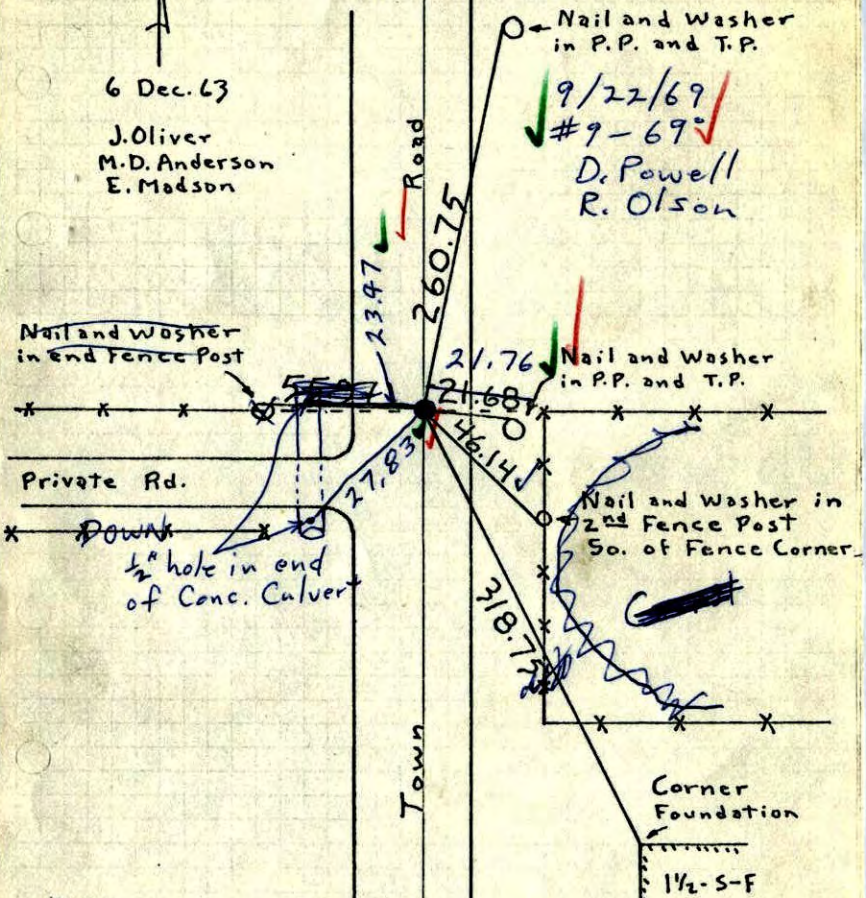 6 Dec. 63
J. Oliver
M.D. Anderson
E. Madson
Nail and Washer
in P.P. and T.P.
9/22/69
#9-69
D. Powell
R. Olson
Road
260.75
23.47
Nail and Washer
in end Fence Post
21.76
21.68
Nail and Washer
in P.P. and T.P.
46.14
27.83
Private Rd.
DOWN
1/2" hole in end
of Conc. Culvert
Nail and Washer in
2nd Fence Post
So. of Fence Corner
318.75
Town
Corner
Foundation
1½-S-F